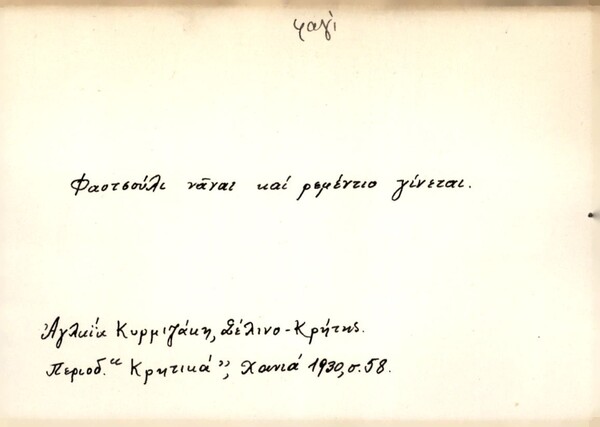 φαγὶ
Φαστσούλι νᾶναι καί ρεμέντιο γίνεται.
Ἀγλαΐα Κυρμιζάκη, Σέλινο-Κρήτης.
Περιοδ. "Κρητικά", Χανιά 1930, σ. 58.